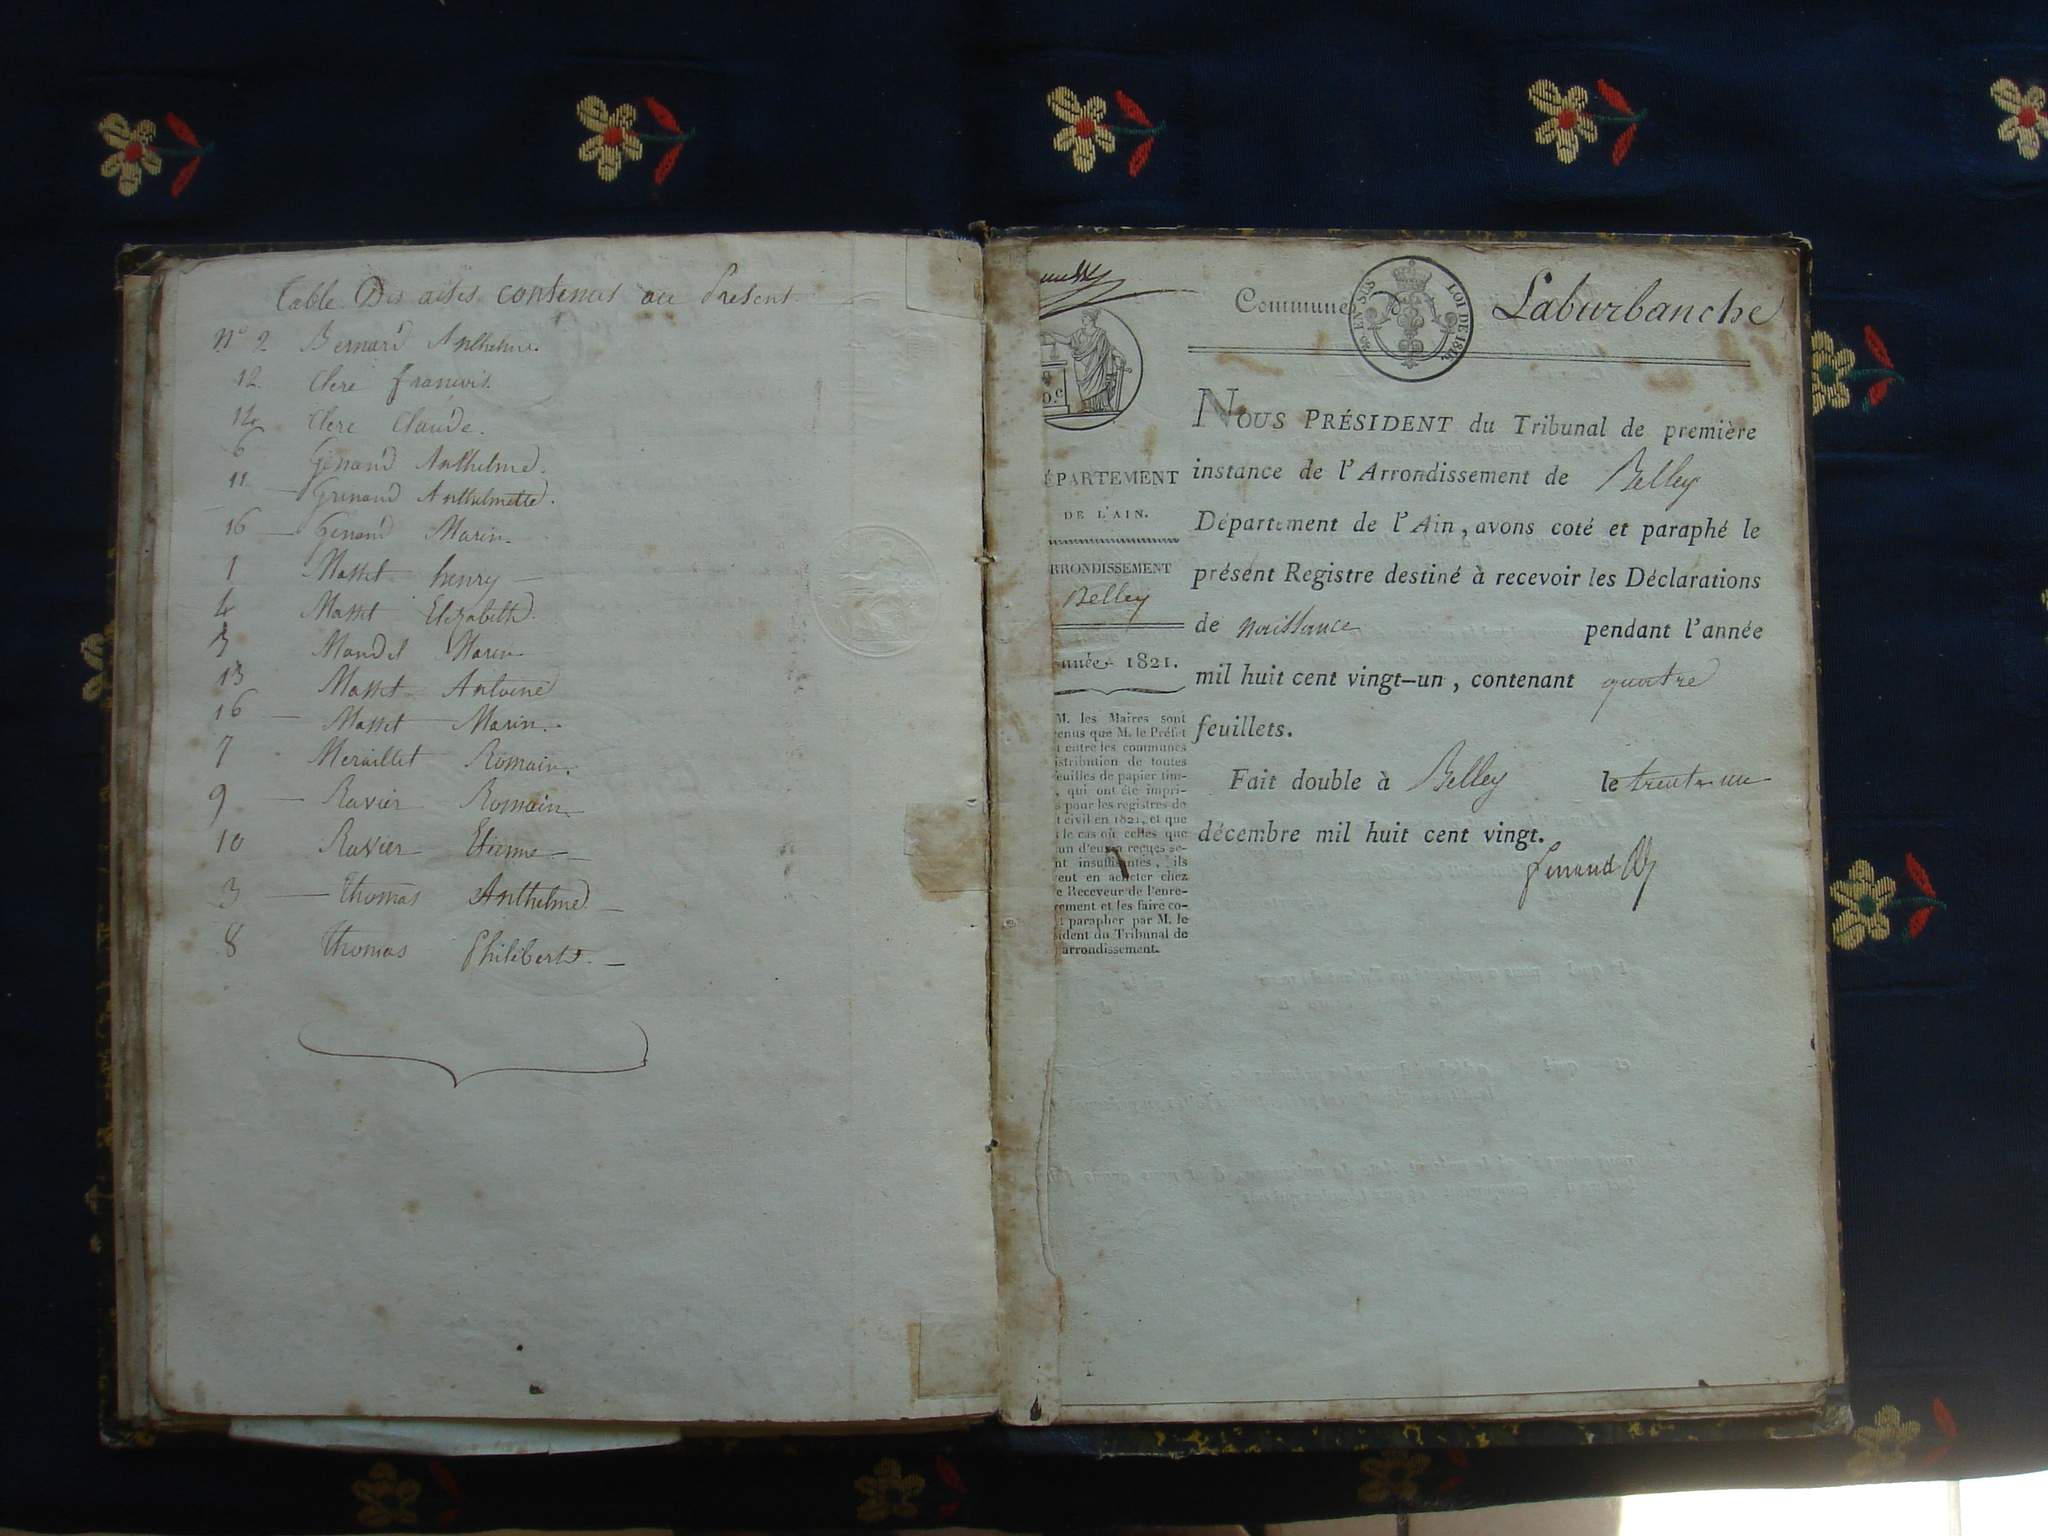 Table Des actes contenus au Présent
N° 2 Bernard Anthelme.
12 Clere francois.
14 Clere Claude.
6 Genand Anthelme.
11 — Grenand Anthelmette.
16 — Genand Marin.
1 Masset henry —
4 Masset Elizabeth.
5 Mandel Marin
13 Masset Antoine
16 — Masset Marin.
7 Meraillet Romain.
9 — Ravier Romain
10 Ravier Etienne —
3 — Thomas Anthelme —
8 Thomas Philibert. —
Commune de Laburbanche
EN SUS LOI DE 1816
NOUS PRÉSIDENT du Tribunal de première
instance de l'Arrondissement de Belley
Département de l'Ain, avons coté et paraphé le
présent Registre destiné à recevoir les Déclarations
de naissance pendant l'année
mil huit cent vingt-un, contenant quatre
feuillets.
Fait double à Belley le trente un
décembre mil huit cent vingt.
ÉPARTEMENT
DE L'AIN.
RRONDISSEMENT
Belley
nnée 1821.
M. les Maires sont
enus que M. le Préfet
t entre les communes
istribution de toutes
feuilles de papier tim-
, qui ont été impri-
s pour les registres de
t civil en 1821, et que
le cas où celles que
un d'eux a reçues se-
nt insuffisantes, ils
ent en acheter chez
e Receveur de l'enre-
ement et les faire co-
t parapher par M. le
sident du Tribunal de
arrondissement.